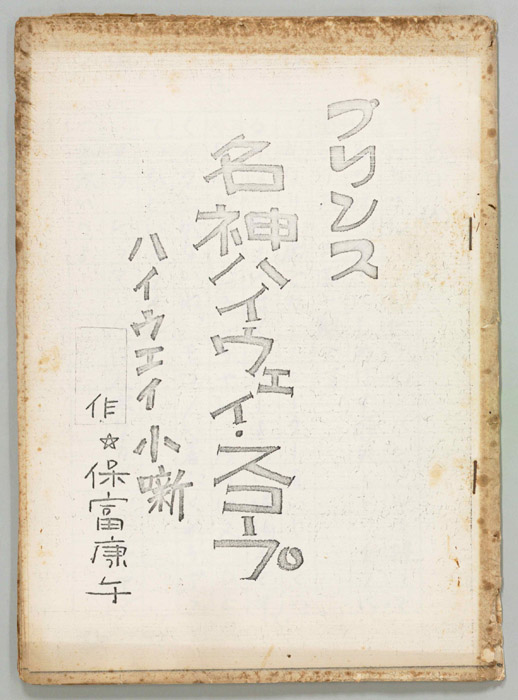 プリンス
名神ハイウェイ・スコープ
ハイウエイ小噺
作☆保富康午